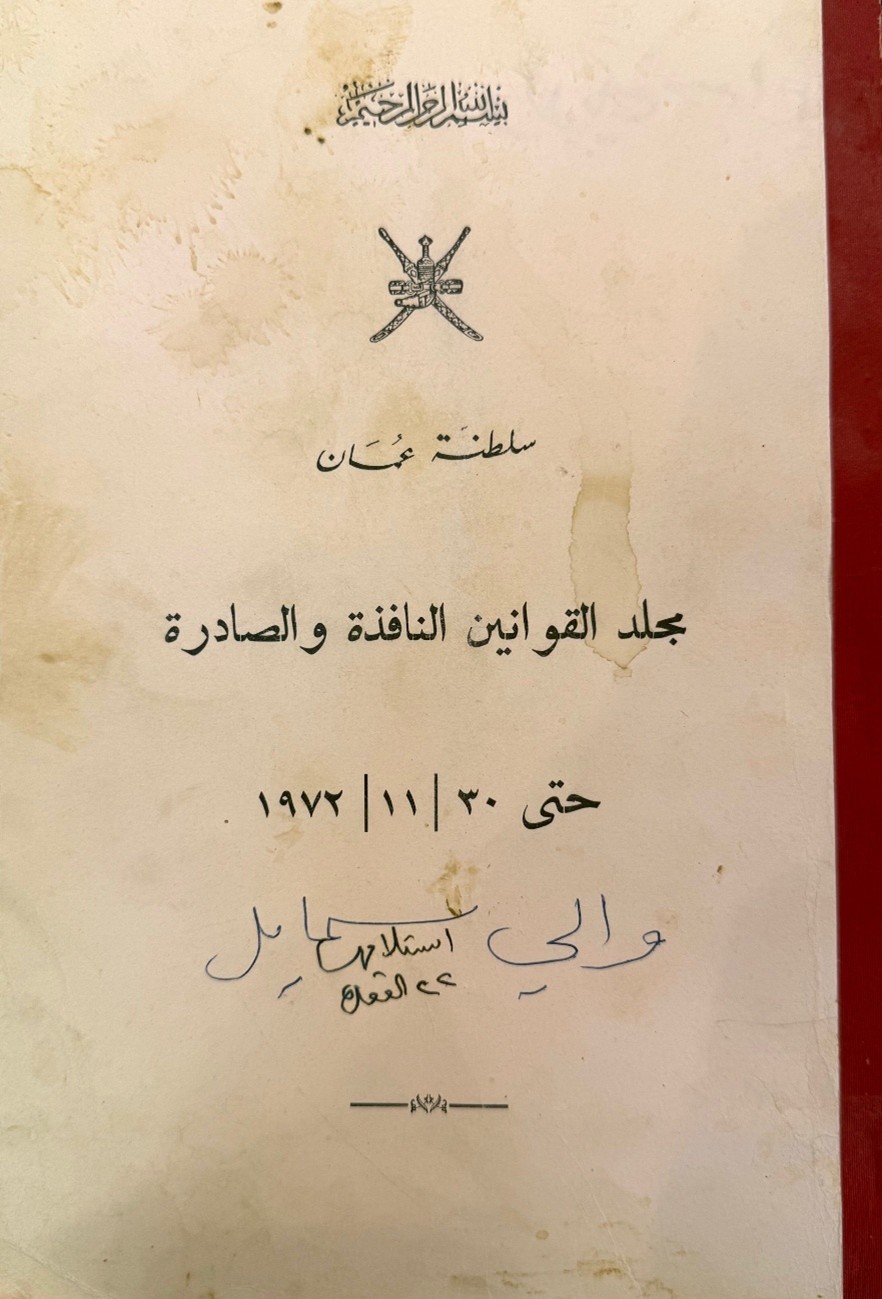 بسم الله الرحمن الرحيم
سلطنة عُمَان
مجلد القوانين النافذة والصادرة
حتى ٣٠ / ١١ / ١٩٧٢
والي سمايل
٢٢ القعدة